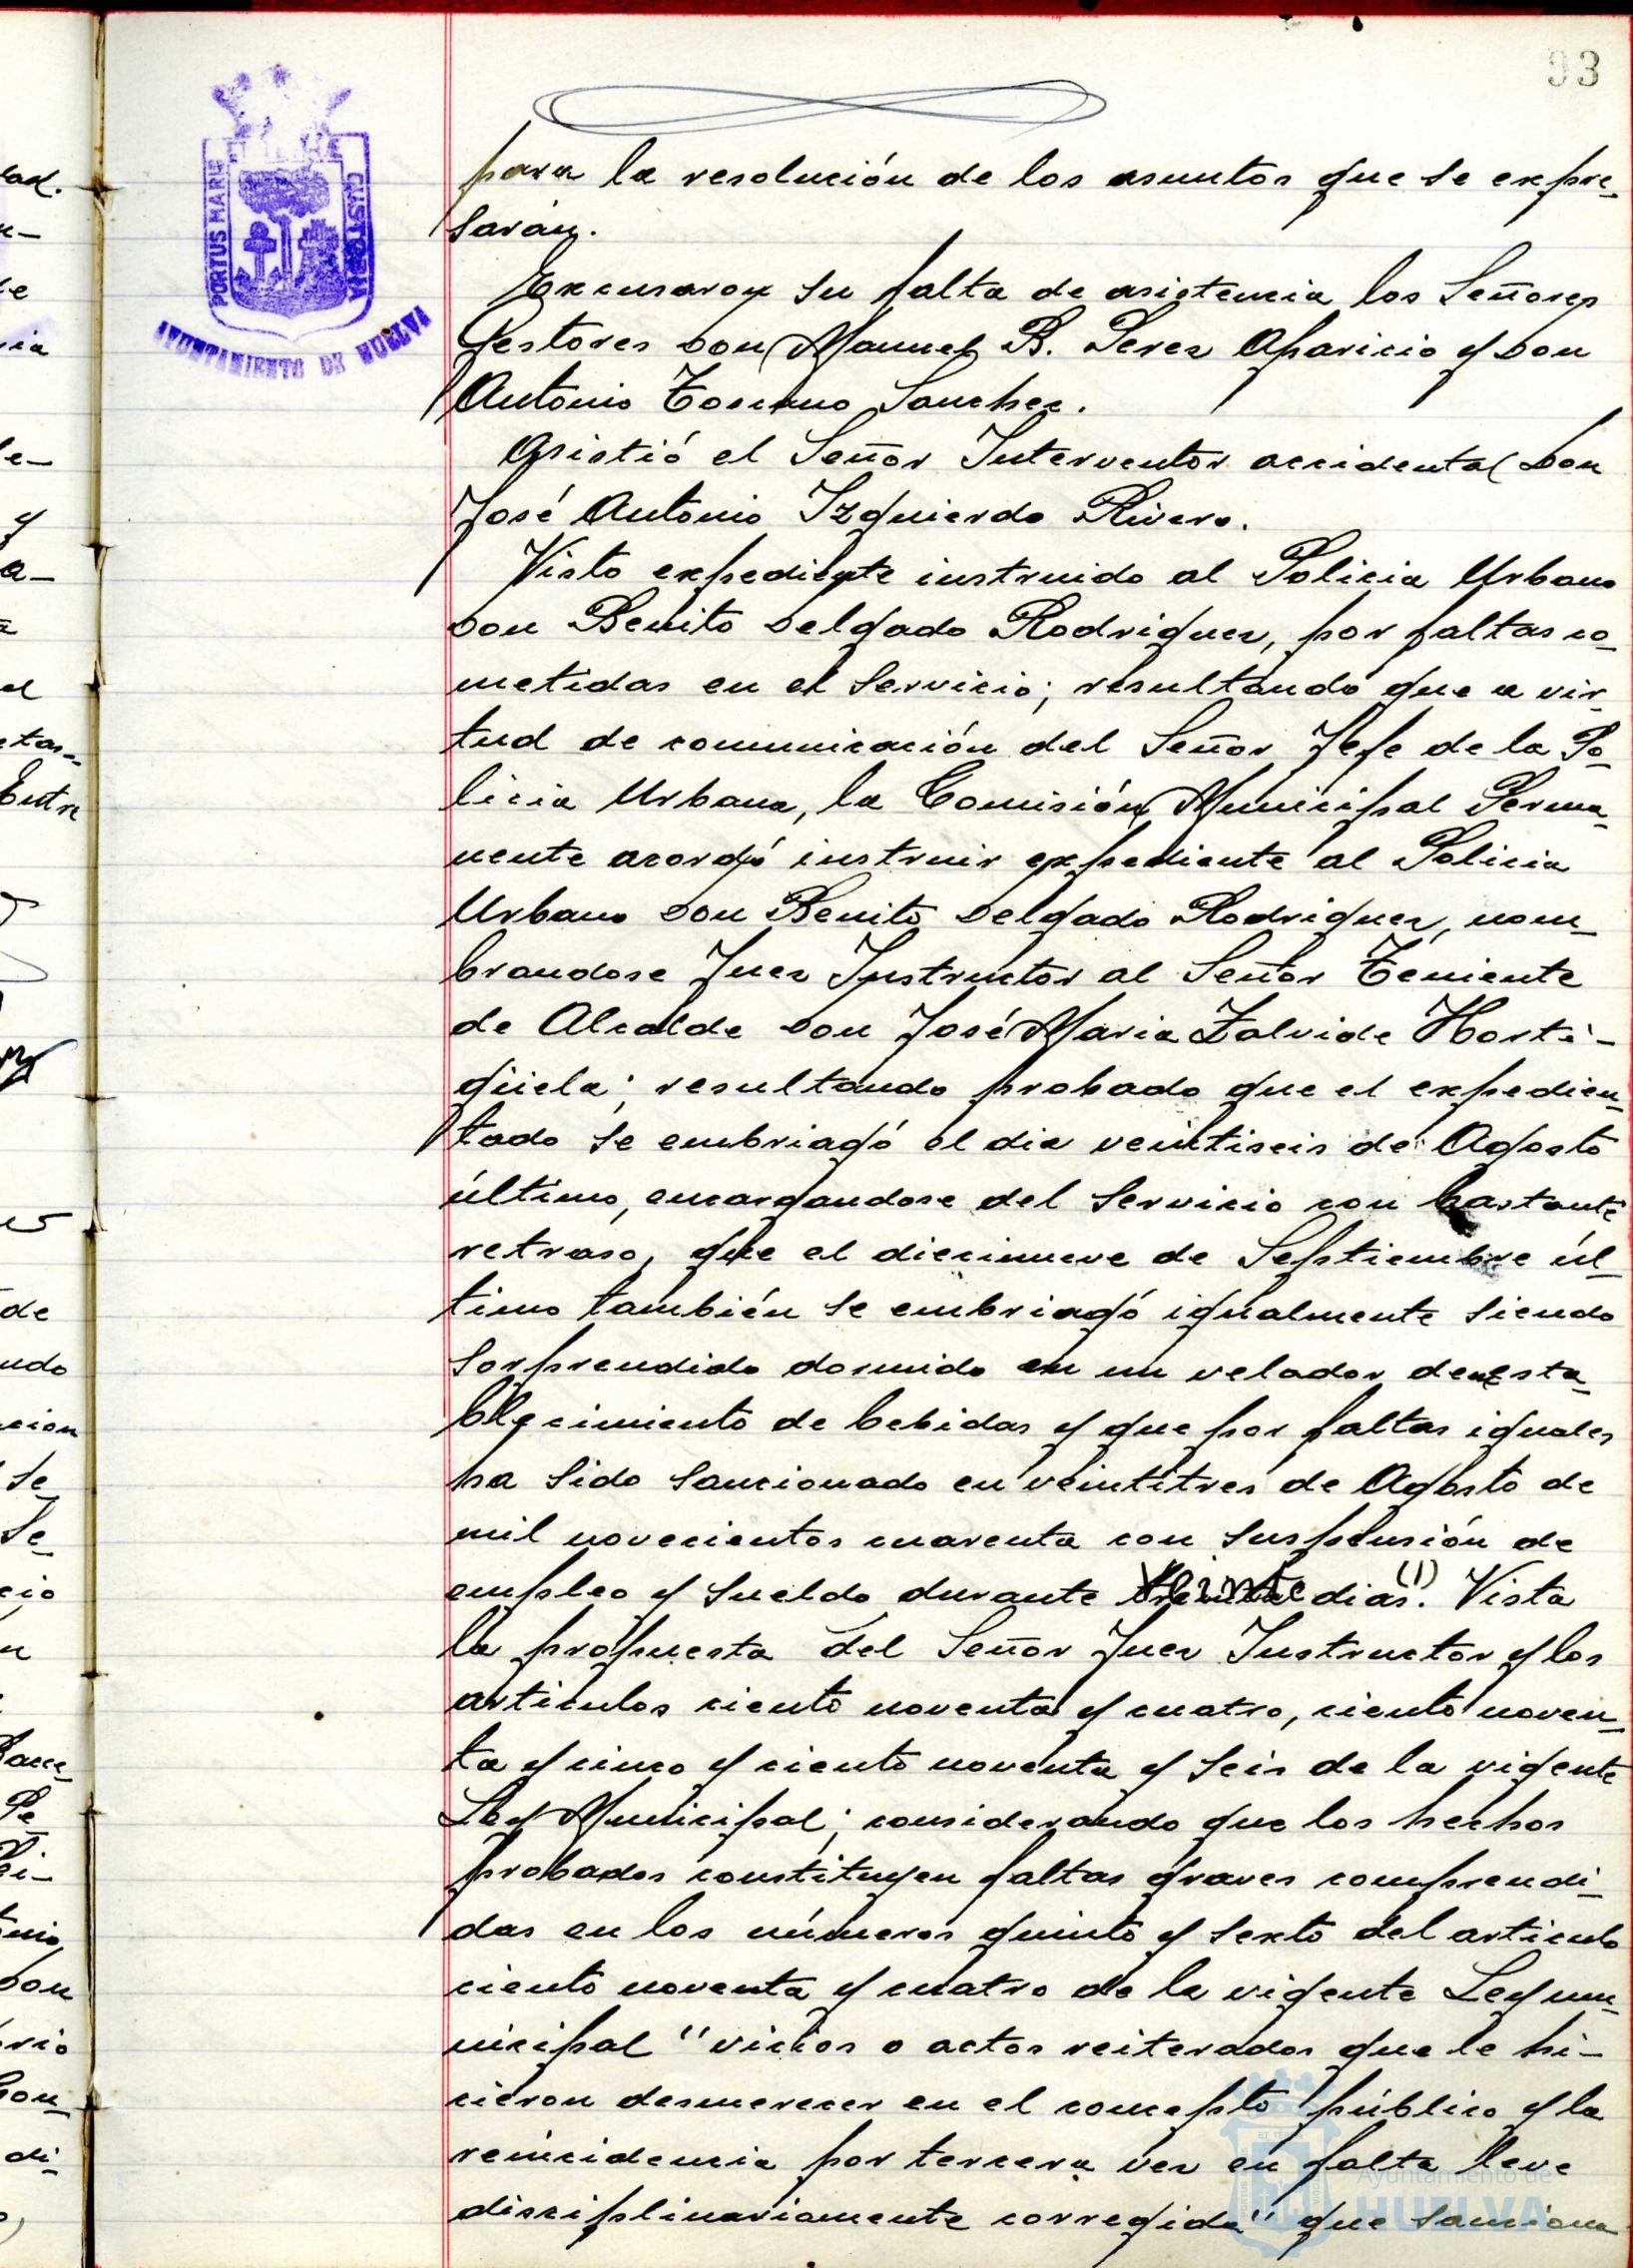 93
PORTUS MARIS
CUSTODIA
AYUNTAMIENTO DE HUELVA
para la resolución de los asuntos que se expre-
saràn.
Excusaron su falta de asistencia los Señores
Gestores Don Manuel B. Perez Aparicio y Don
Antonio Toscano Sanchez.
Asistió el Señor Interventor accidental Don
José Antonio Izquierdo Rivero.
Visto expediente instruido al Policia Urbano
Don Benito Delgado Rodriguez, por faltas co-
metidas en el servicio; resultando que a vir-
tud de comunicación del Señor Jefe de la Po-
licia Urbana, la Comisión Municipal Perma-
nente acordó instruir expediente al Policia
Urbano Don Benito Delgado Rodriguez, nom-
brandose Juez Instructor al Señor Teniente
de Alcalde Don José Maria Zalvide Horti-
güela; resultando probado que el expedien-
tado se embriagó el dia veintiseis de Agosto
último, encargandose del servicio con bastante
retraso, que el diecinueve de Septiembre úl-
timo también se embriagó igualmente siendo
sorprendido dormido en un velador de esta-
blecimiento de bebidas y que por faltas iguales
ha sido sancionado en veintitres de Agosto de
mil novecientos cuarenta con suspensión de
empleo y sueldo durante veinte dias.(1) Vista
la propuesta del Señor Juez Instructor y los
articulos ciento noventa y cuatro, ciento noven-
ta y cinco y ciento noventa y seis de la vigente
Ley Municipal; considerando que los hechos
probados constituyen faltas graves comprendi-
das en los números quinto y sexto del articulo
ciento noventa y cuatro de la vigente Ley mu-
nicipal "vicios o actos reiterados que le hi-
cieron desmerecer en el concepto público y la
reincidencia por tercera vez en falta leve
disciplinariamente corregida" que sanciona
Ayuntamiento de
HUELVA